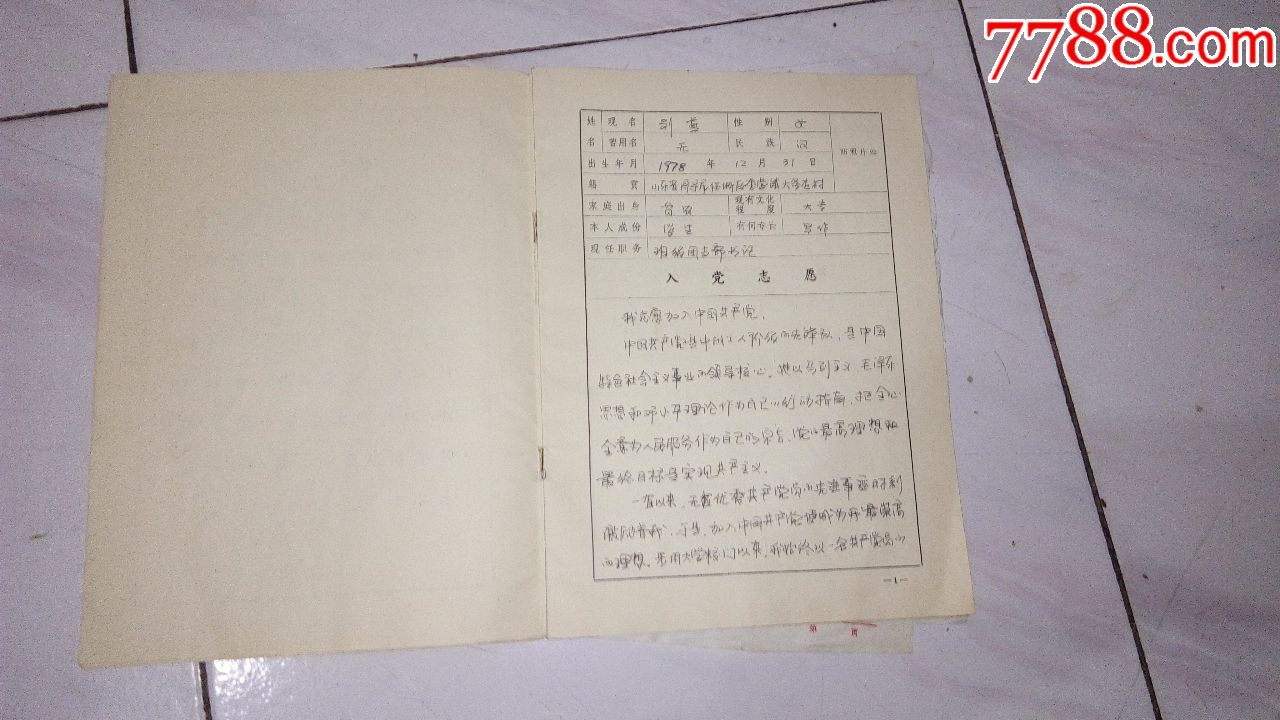 7788.com
姓 现名 刘 性别 女 贴照片处
名 曾用名 无 民族 汉
出生年月 1978 年 12 月 31 日
籍贯 山东省
家庭出身 贫农 现有文化程度 大专
本人成份 学生 有何专长 写作
现任职务 班级团支部书记
入党志愿
我志愿加入中国共产党。
中国共产党是中国工人阶级的先锋队，是中国
特色社会主义事业的领导核心。她以马列主义、毛泽东
思想和邓小平理论作为自己的行动指南，把全心
全意为人民服务作为自己的宗旨，党的最高理想和
最终目标是实现共产主义。
一直以来，无数优秀共产党员的先进事迹时刻
激励着我，于是，加入中国共产党便成为我最崇高
的理想。步入大学校门以来，我始终以一名共产党员的
—1—
第 页